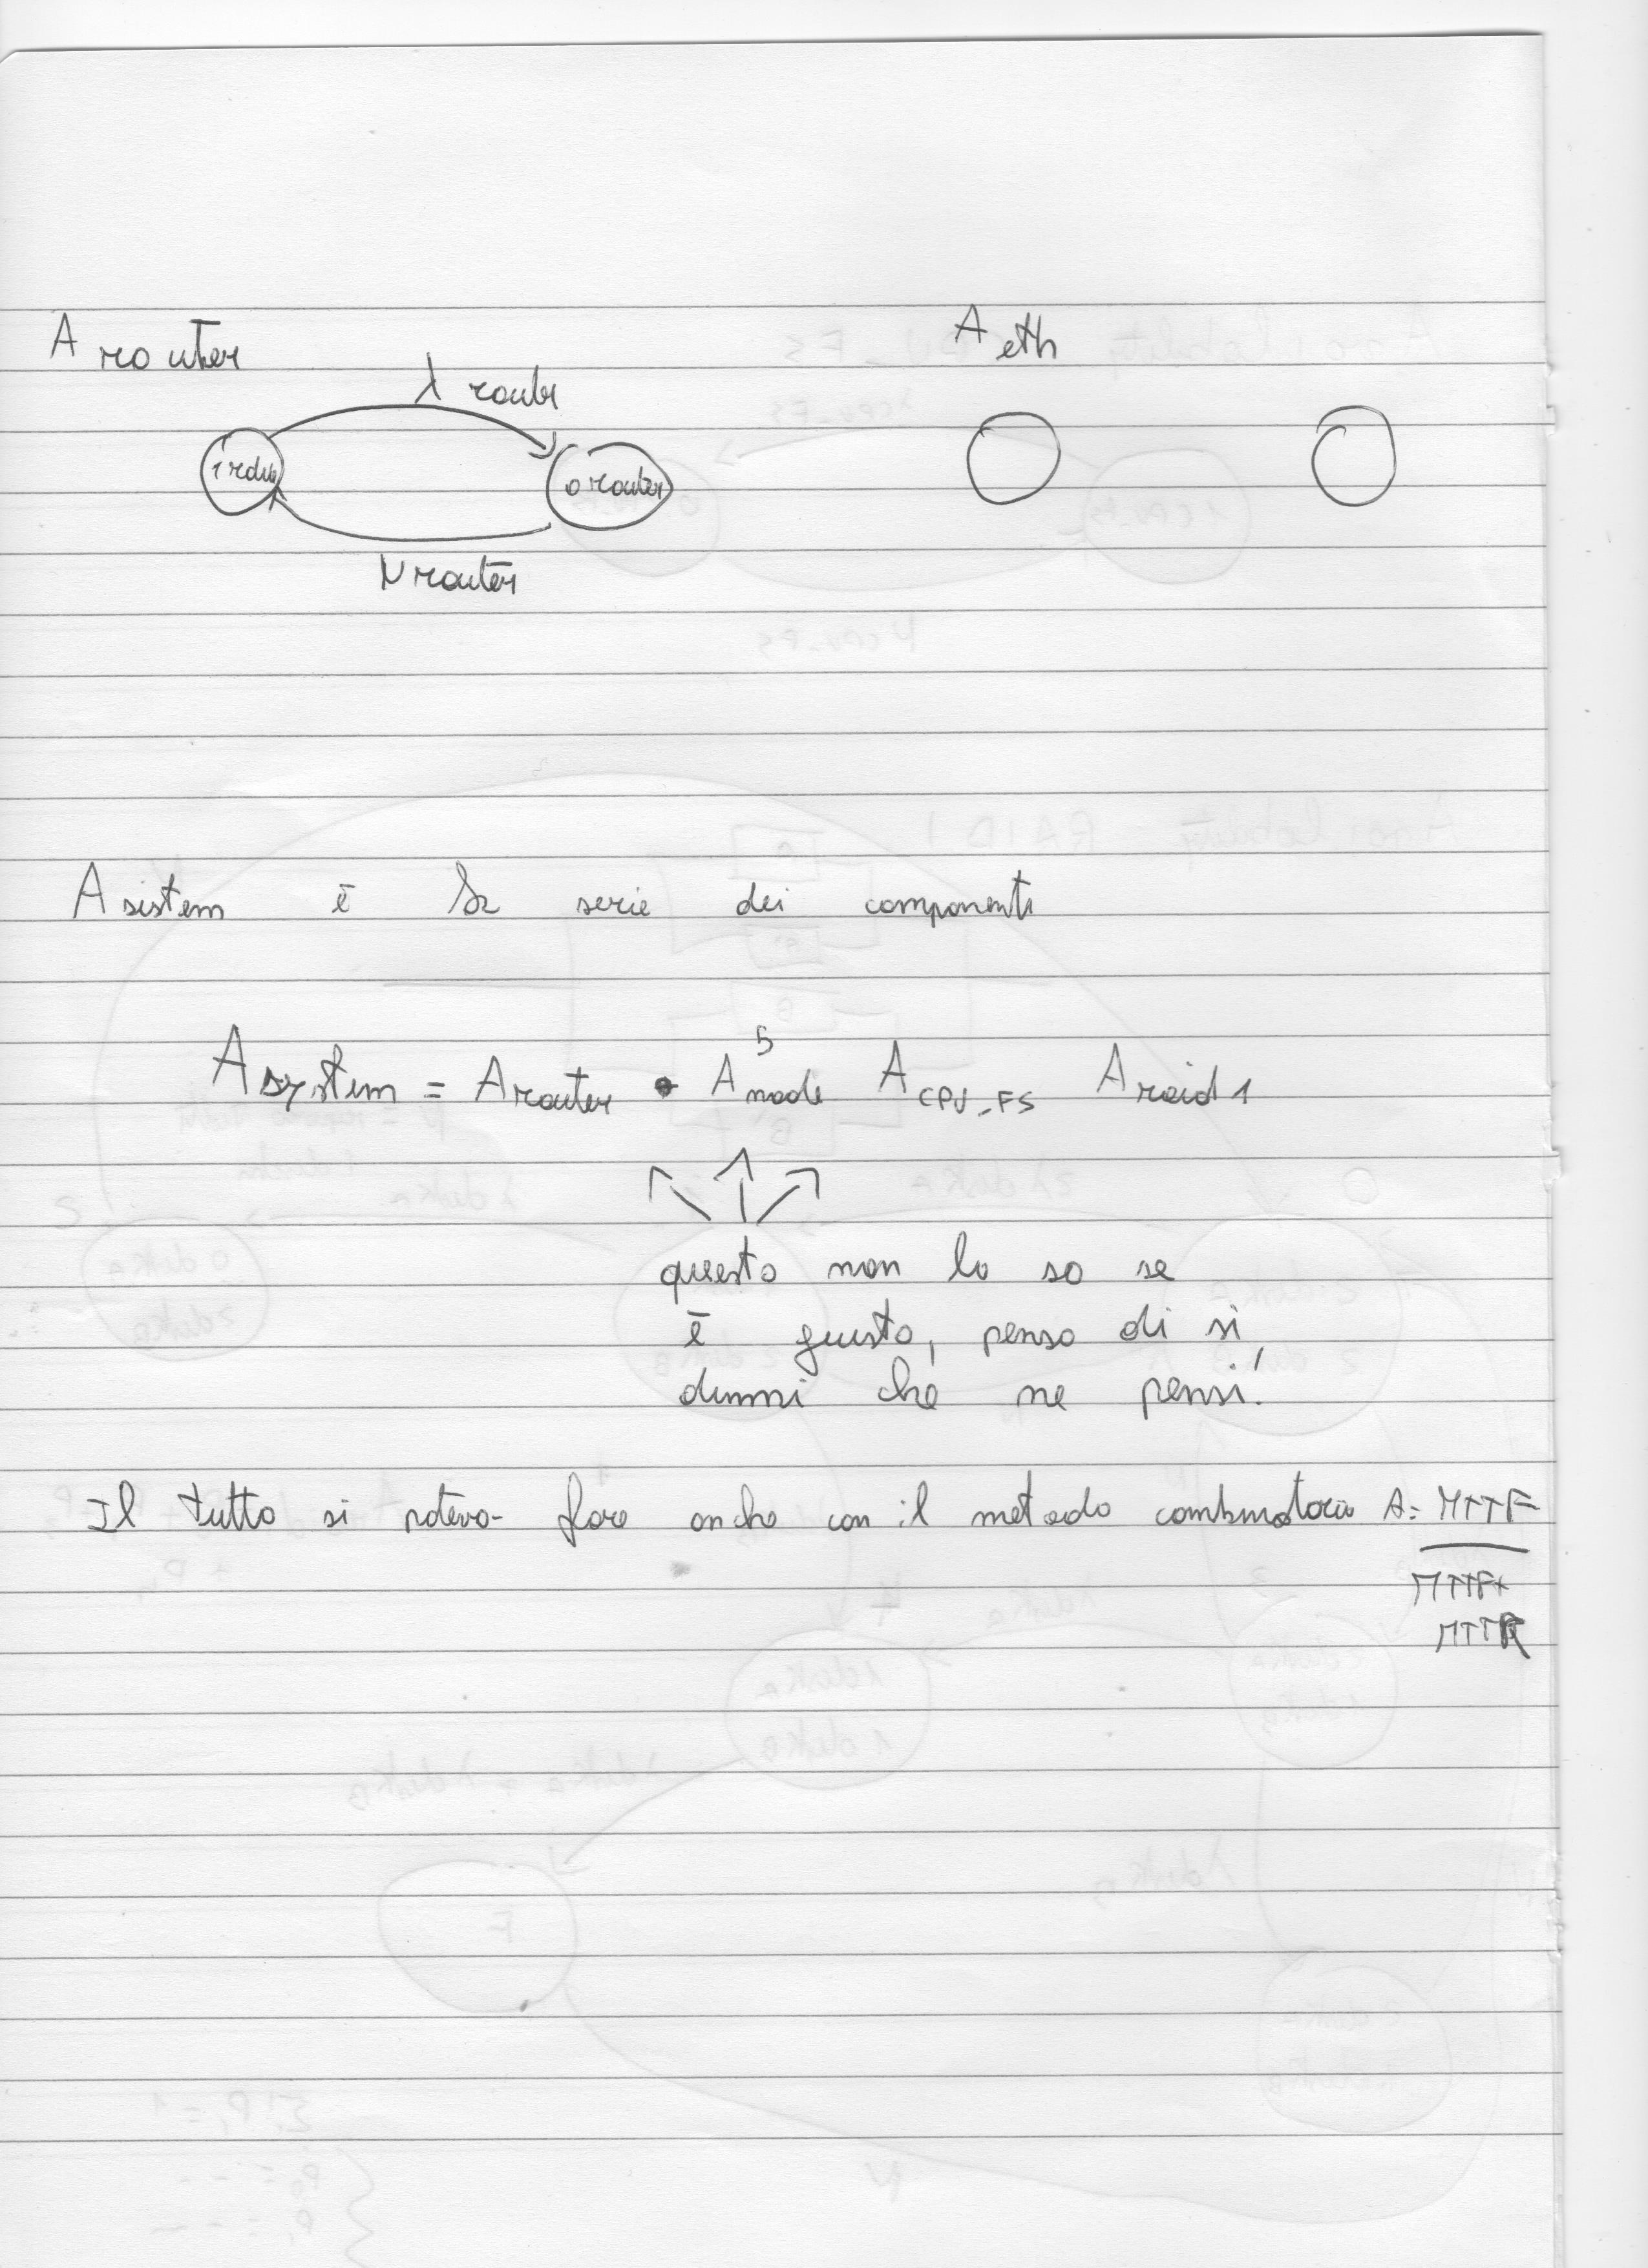 A router
A eth
λ router
1 router
0 router
μ router
A sistem è la serie dei componenti
A system = A router • A node 5 A CPU_FS A raid 1
questo non lo so se
è giusto, penso di si,
dimmi che ne pensi!
Il tutto si poteva fare anche con il metodo combinatorio A = MTTF
MTTF+
MTTR